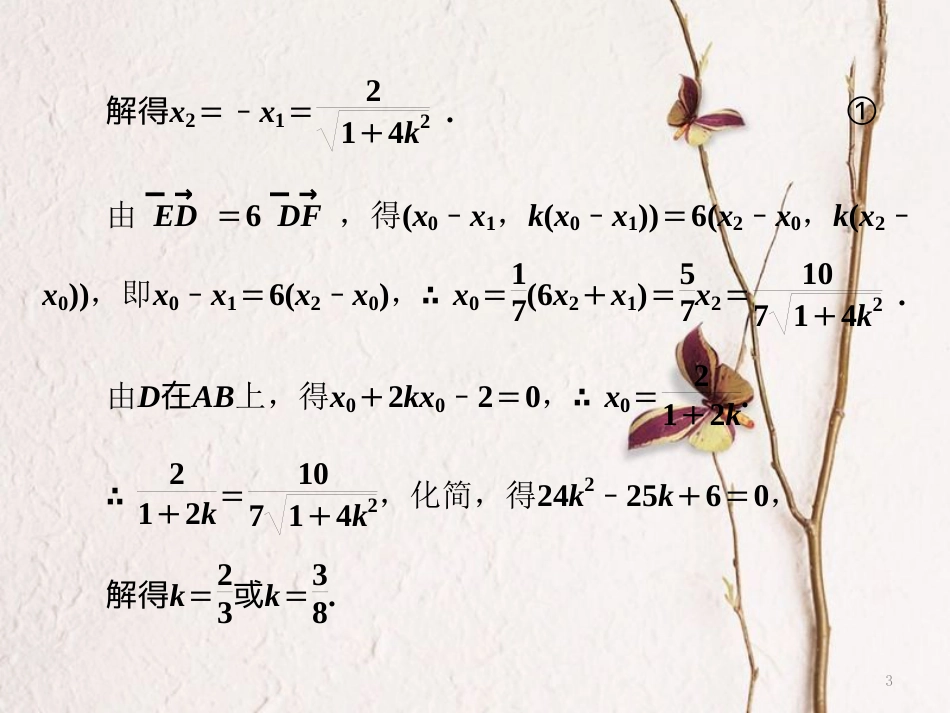 解得x₂＝－x₁＝2/√(1＋4k²). ①
由 →ED ＝6 →DF ，得(x₀－x₁，k(x₀－x₁))＝6(x₂－x₀，k(x₂－
x₀))，即x₀－x₁＝6(x₂－x₀)，∴ x₀＝1/7(6x₂＋x₁)＝5/7x₂＝10/(7√(1＋4k²)).
由D在AB上，得x₀＋2kx₀－2＝0，∴ x₀＝2/(1＋2k).
∴ 2/(1＋2k)＝10/(7√(1＋4k²))，化简，得24k²－25k＋6＝0，
解得k＝2/3或k＝3/8.
3